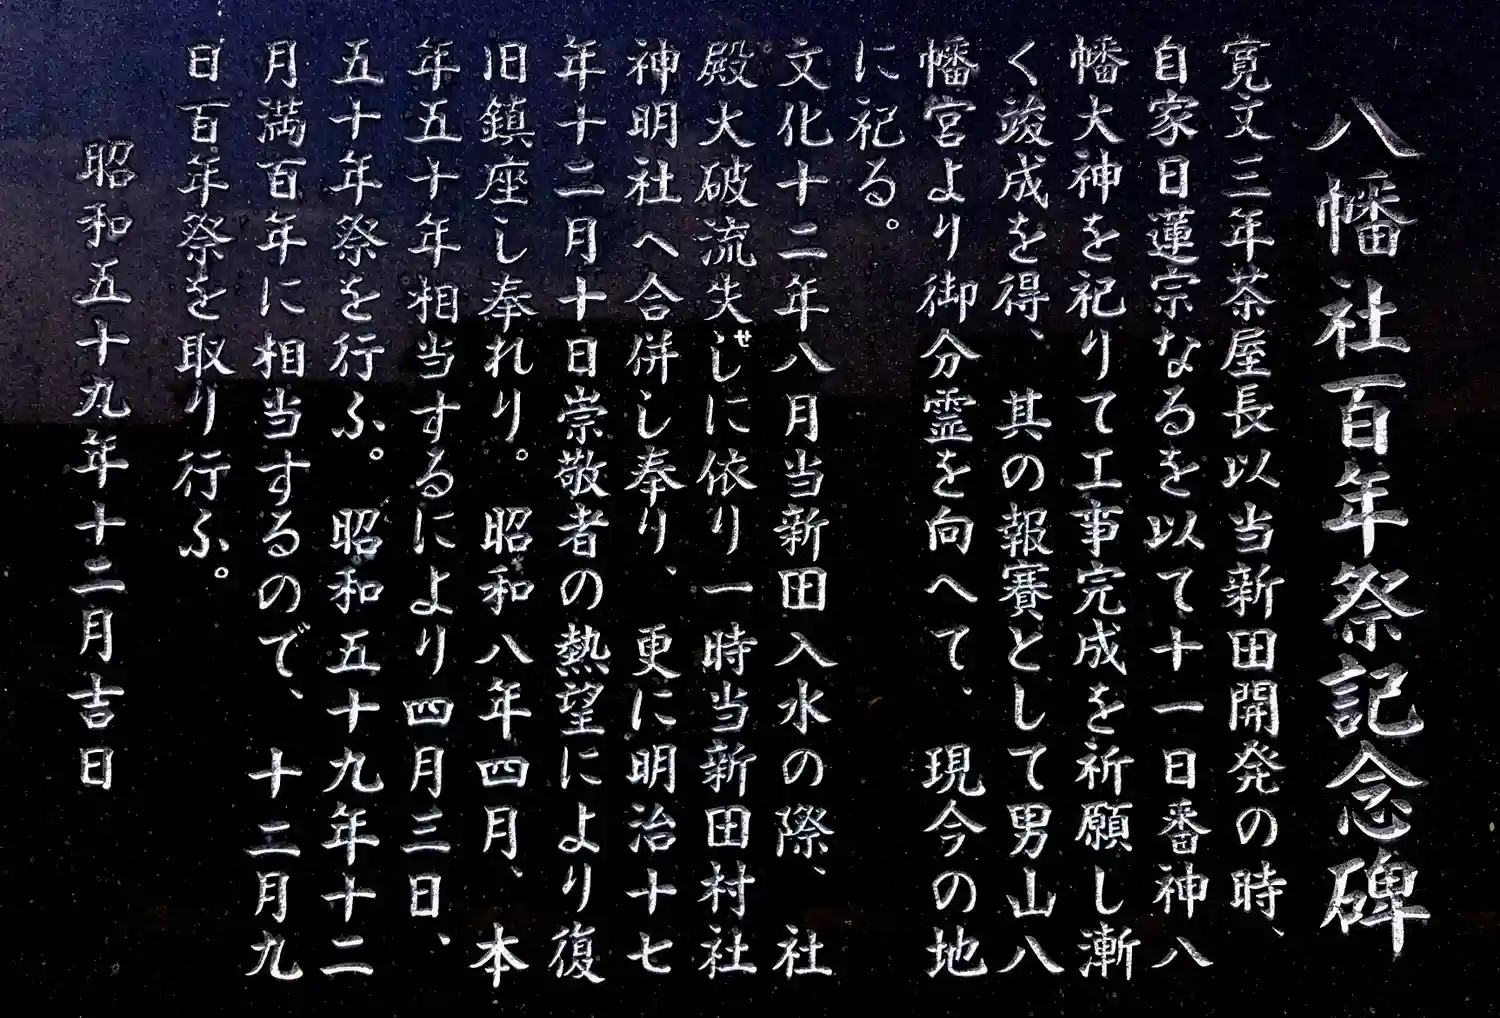 八幡社百年祭記念碑
寛文三年茶屋長以当新田開発の時、
自家日蓮宗なるを以て十一日番神八
幡大神を祀りて工事完成を祈願し漸
く竣成を得、其の報賽として男山八
幡宮より御分霊を向へて、現今の地
に祀る。
文化十二年八月当新田入水の際、社
殿大破流失せしに依り一時当新田村社
神明社へ合併し奉り、更に明治十七
年十二月十日崇敬者の熱望により復
旧鎮座し奉れり。昭和八年四月、本
年五十年相当するにより四月三日、
五十年祭を行ふ。昭和五十九年十二
月満百年に相当するので、十二月九
日百年祭を取り行ふ。
昭和五十九年十二月吉日